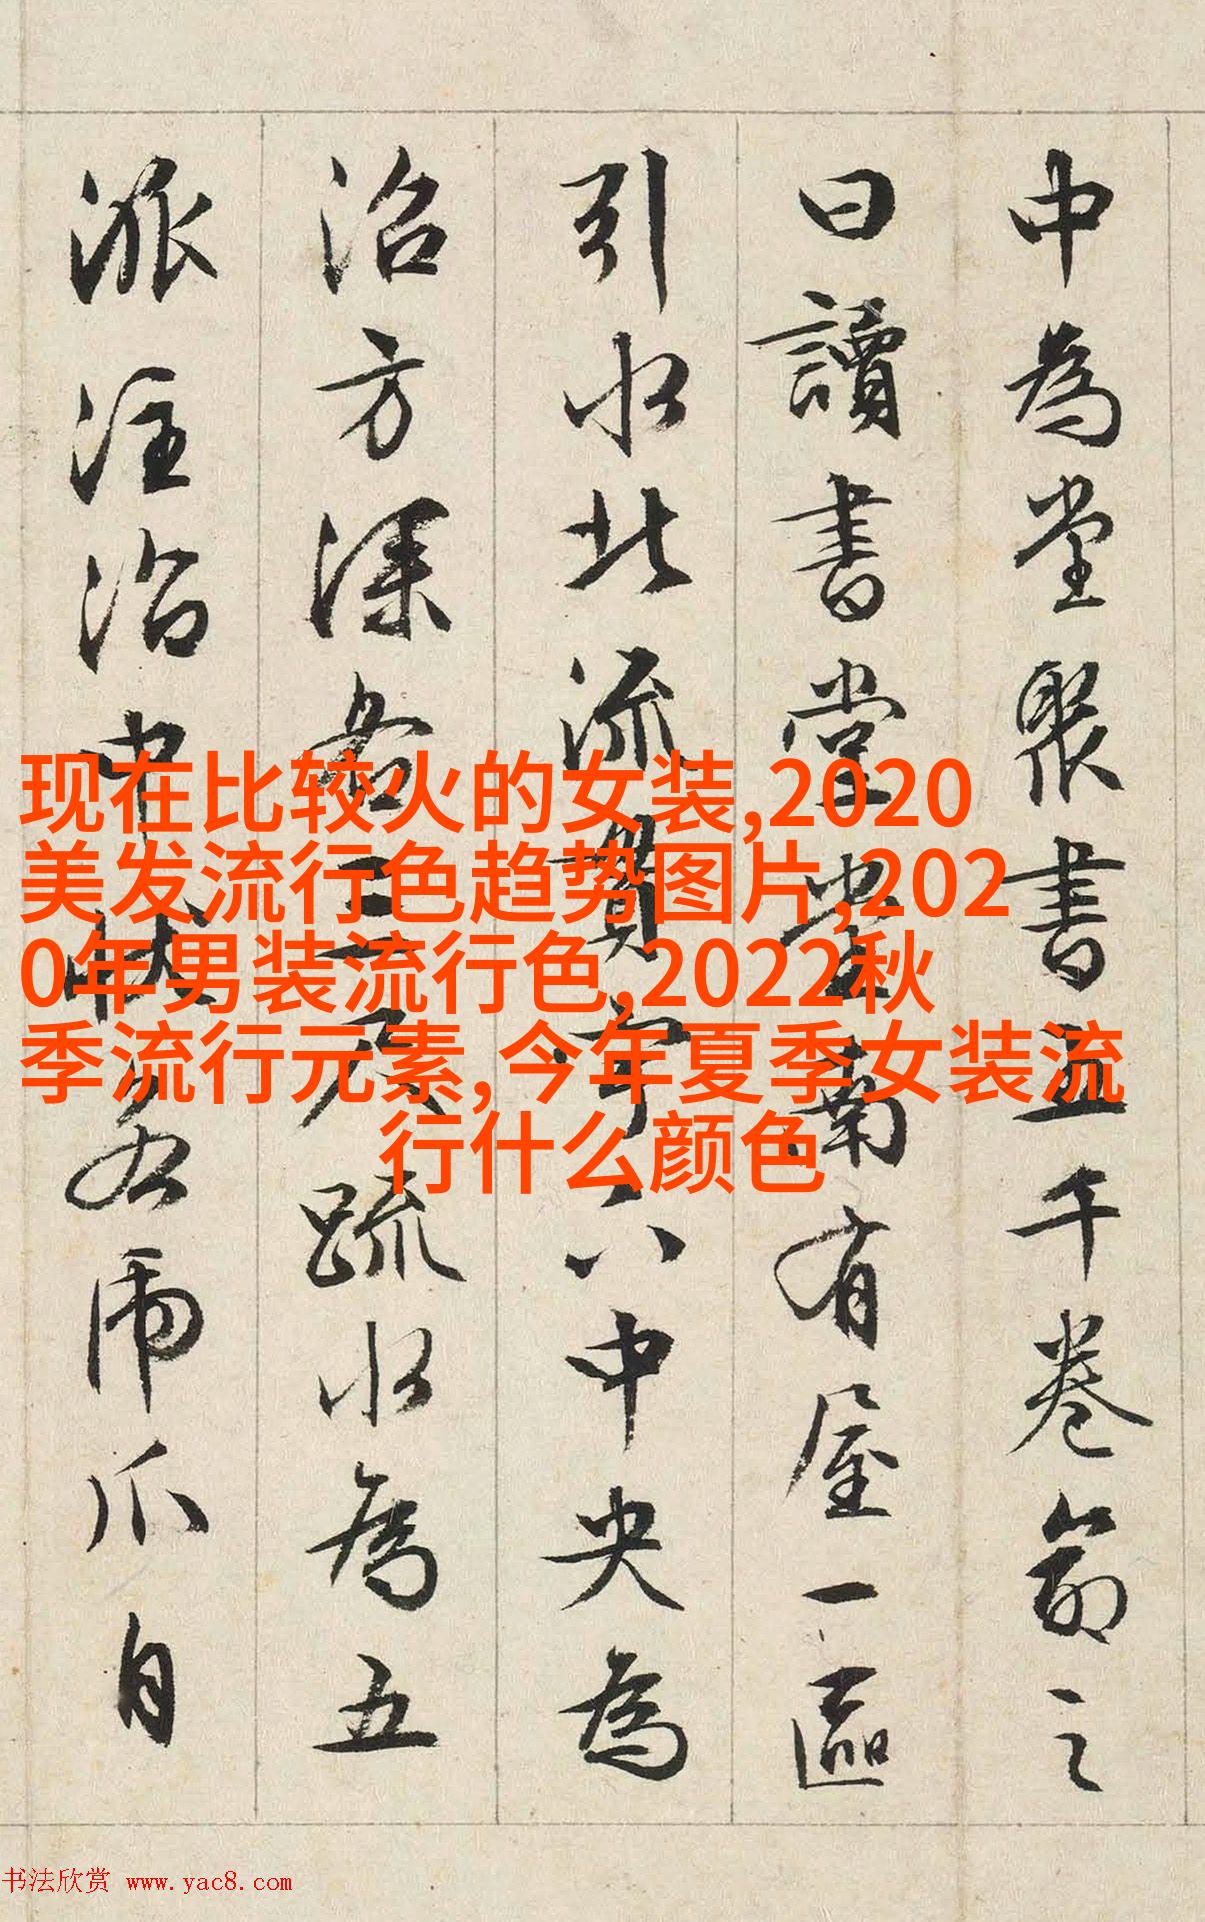 中為堂聚書五千卷命之
曰讀書堂堂南有屋一區
引水北流貫宇下中央為
沼方深各三尺疏水為五
派注沼中狀若虎爪自
现在比较火的女装,2020
美发流行色趋势图片,202
0年男装流行色,2022秋
季流行元素,今年夏季女装流
行什么颜色
书法欣赏 www.yac8.com